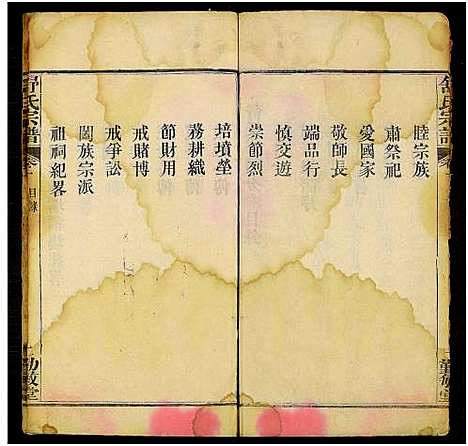 舒氏宗譜
睦宗族
肅祭祀
愛國家
敬師長
端品行
慎交遊
崇節烈
培墳塋
務耕織
節財用
戒賭博
戒爭訟
闔族宗派
祖祠紀畧
舒氏宗譜
目錄
勤敏堂